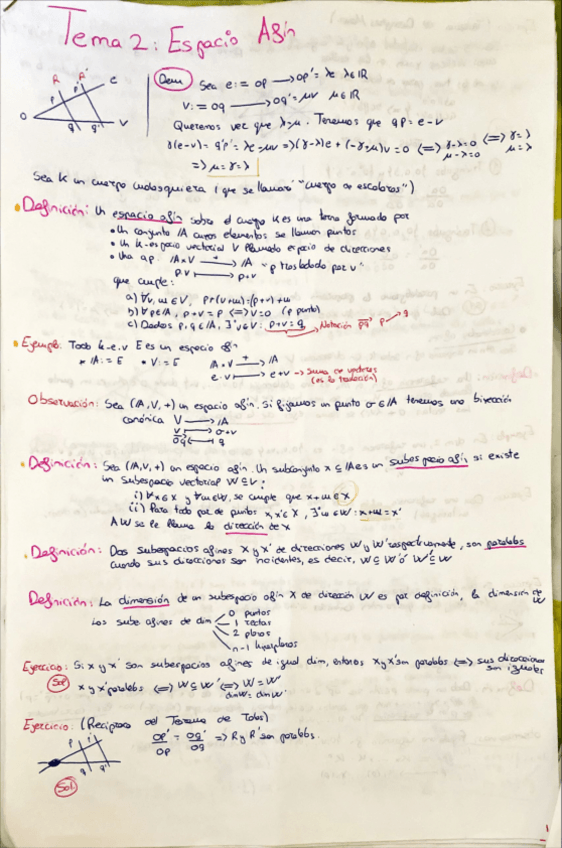 Tema 2: Espacio Afín
R R' e
p p'
O q q' v
Dem Sea e:= OP → OP' = λe λ∈ℝ
V:= OQ → OQ' = μv μ∈ℝ
Queremos ver que λ=μ. Tenemos que QP = e-v
γ(e-v) = Q'P' = λe-μv => (γ-λ)e + (-γ+μ)v = 0 <=> γ-λ=0 <=> γ=λ
μ-λ=0 μ=λ
=> μ=γ=λ
Sea K un cuerpo cualesquiera (que se llamará "cuerpo de escalares")
• Definición: Un espacio afín sobre el cuerpo K es una terna formada por
• Un conjunto /A cuyos elementos se llaman puntos
• Un K-espacio vectorial V llamado espacio de direcciones
• Una ap. /A × V → + /A "p trasladado por v"
p.v → p+v
que cumple:
a) ∀v, w ∈ V, p+(v+w)=(p+v)+w
b) ∀p∈/A, p+v = p <=> v=0 (p punto)
c) Dados p, q ∈/A, ∃'v∈V: p+v=q Notación pq p q
• Ejemplo: Todo k-e.v E es un espacio afín
• /A:= E • V:= E /A × V → + /A
e.v → e+v → Suma de vectores
(es la traslación)
Observación: Sea (/A, V, +) un espacio afín. Si fijamos un punto σ∈/A tenemos una biyección
canónica V → /A
v → σ+v
σq ← q
• Definición: Sea (/A, V, +) un espacio afín. Un subconjunto x ⊆ /A es un subespacio afín si existe
un subespacio vectorial W⊆V:
i) ∀x∈X y ∀w∈W, se cumple que x+w∈X
ii) Para todo par de puntos x,x'∈X, ∃'w∈W: x+w=x'
A W se le llama la dirección de X
• Definición: Dos subespacios afines X y X' de direcciones W y W' respectivamente, son paralelos
cuando sus direcciones son incidentes, es decir, W⊆W' ó W'⊆W
Definición: La dimensión de un subespacio afín X de dirección W es por definición, la dimensión de W
Los sube afines de dim 0 puntos
1 rectas
2 planos
n-1 hiperplanos
Ejercicio: Si X y X' son subespacios afines de igual dim, entonces X y X' son paralelos <=> sus direcciones
son iguales
Sol X y X' paralelos <=> W⊆W' <=> W=W'
dimW=dimW'
Ejercicio: (Recíproco del Teorema de Tales)
OP'/OP = OQ'/OQ => R y R' son paralelos.
Sol